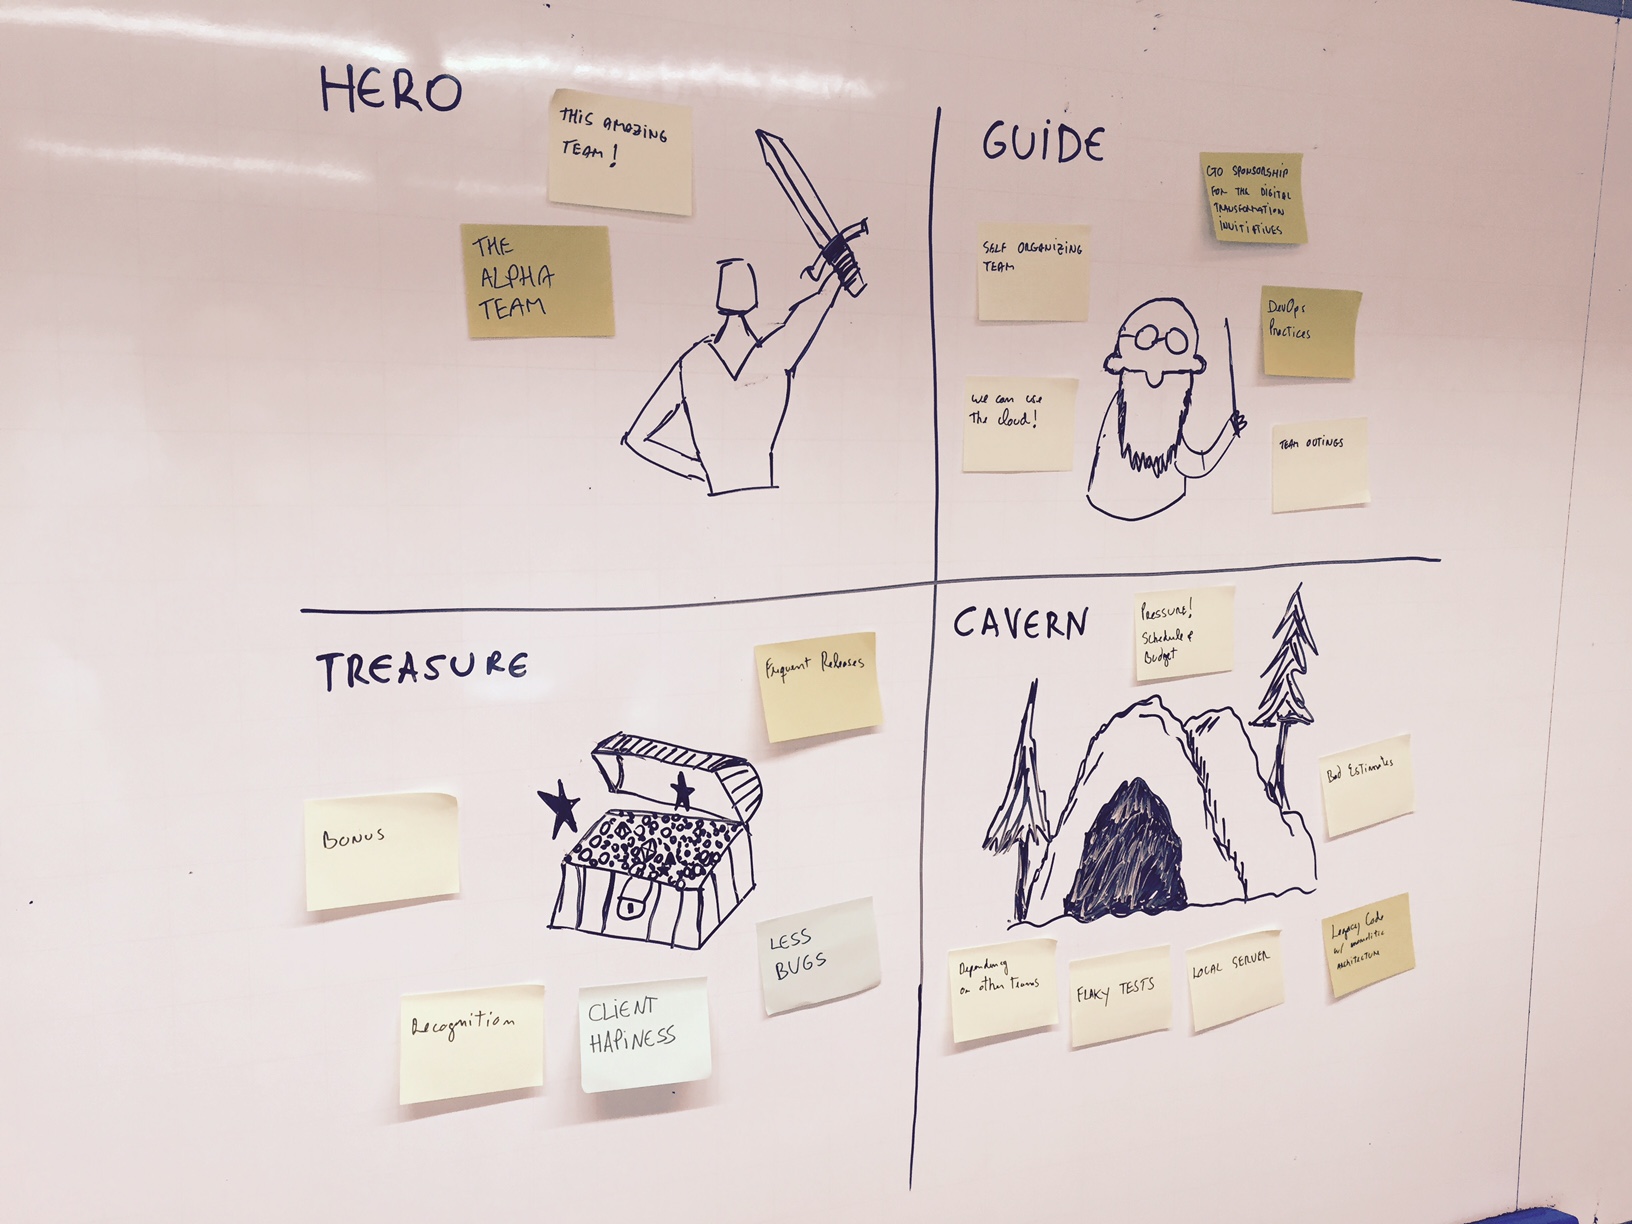 HERO
THIS AMAZING
TEAM!
THE
ALPHA
TEAM
GUIDE
CTO SPONSORSHIP
FOR THE DIGITAL
TRANSFORMATION
INVITIATIVES
SELF ORGANIZING
TEAM
DevOps
Practices
we can use
The cloud!
TEAM OUTINGS
TREASURE
Frequent Releases
BONUS
LESS
BUGS
Recognition
CLIENT
HAPINESS
CAVERN
PRESSURE!
Schedule &
Budget
Bad Estimates
Legacy Code
w/ monolitic
ARCHITECTURE
Dependency
on other Teams
FLAKY TESTS
LOCAL SERVER